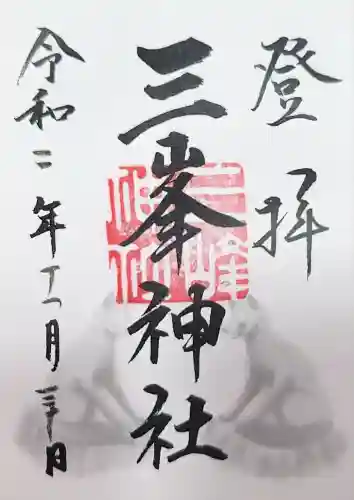 登拝
三峯神社
令和二年十一月三十日